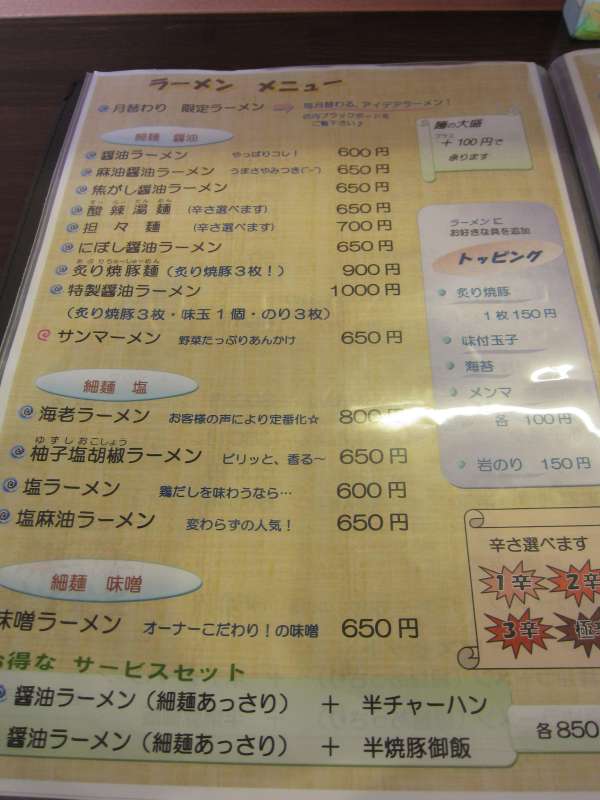 ラーメン メニュー
月替わり 限定ラーメン ⇨ 毎月替わる、アイデアラーメン！
店内ブラックボードを
ご覧下さい♪
麺の大盛
プラス
＋100円で
承ります
細麺 醤油
醤油ラーメン やっぱりコレ！ 600円
麻油醤油ラーメン うまさやみつき(^-^) 650円
焦がし醤油ラーメン 650円
酸辣湯麺 (辛さ選べます) 650円
担々麺 (辛さ選べます) 700円
にぼし醤油ラーメン 650円
あぶりちゃーしゅーめん
炙り焼豚麺(炙り焼豚3枚！) 900円
特製醤油ラーメン 1000円
(炙り焼豚3枚・味玉1個・のり3枚)
サンマーメン 野菜たっぷりあんかけ 650円
ラーメンに
お好きな具を追加
トッピング
炙り焼豚
1枚150円
味付玉子
海苔
メンマ
各 100円
岩のり 150円
細麺 塩
海老ラーメン お客様の声により定番化☆ 800円
ゆずしおこしょう
柚子塩胡椒ラーメン ピリッと、香る～ 650円
塩ラーメン 鶏だしを味わうなら… 600円
塩麻油ラーメン 変わらずの人気！ 650円
辛さ選べます
1辛 2辛
3辛 極
細麺 味噌
味噌ラーメン オーナーこだわり！の味噌 650円
お得な サービスセット
醤油ラーメン(細麺あっさり) ＋ 半チャーハン
醤油ラーメン(細麺あっさり) ＋ 半焼豚御飯
各850